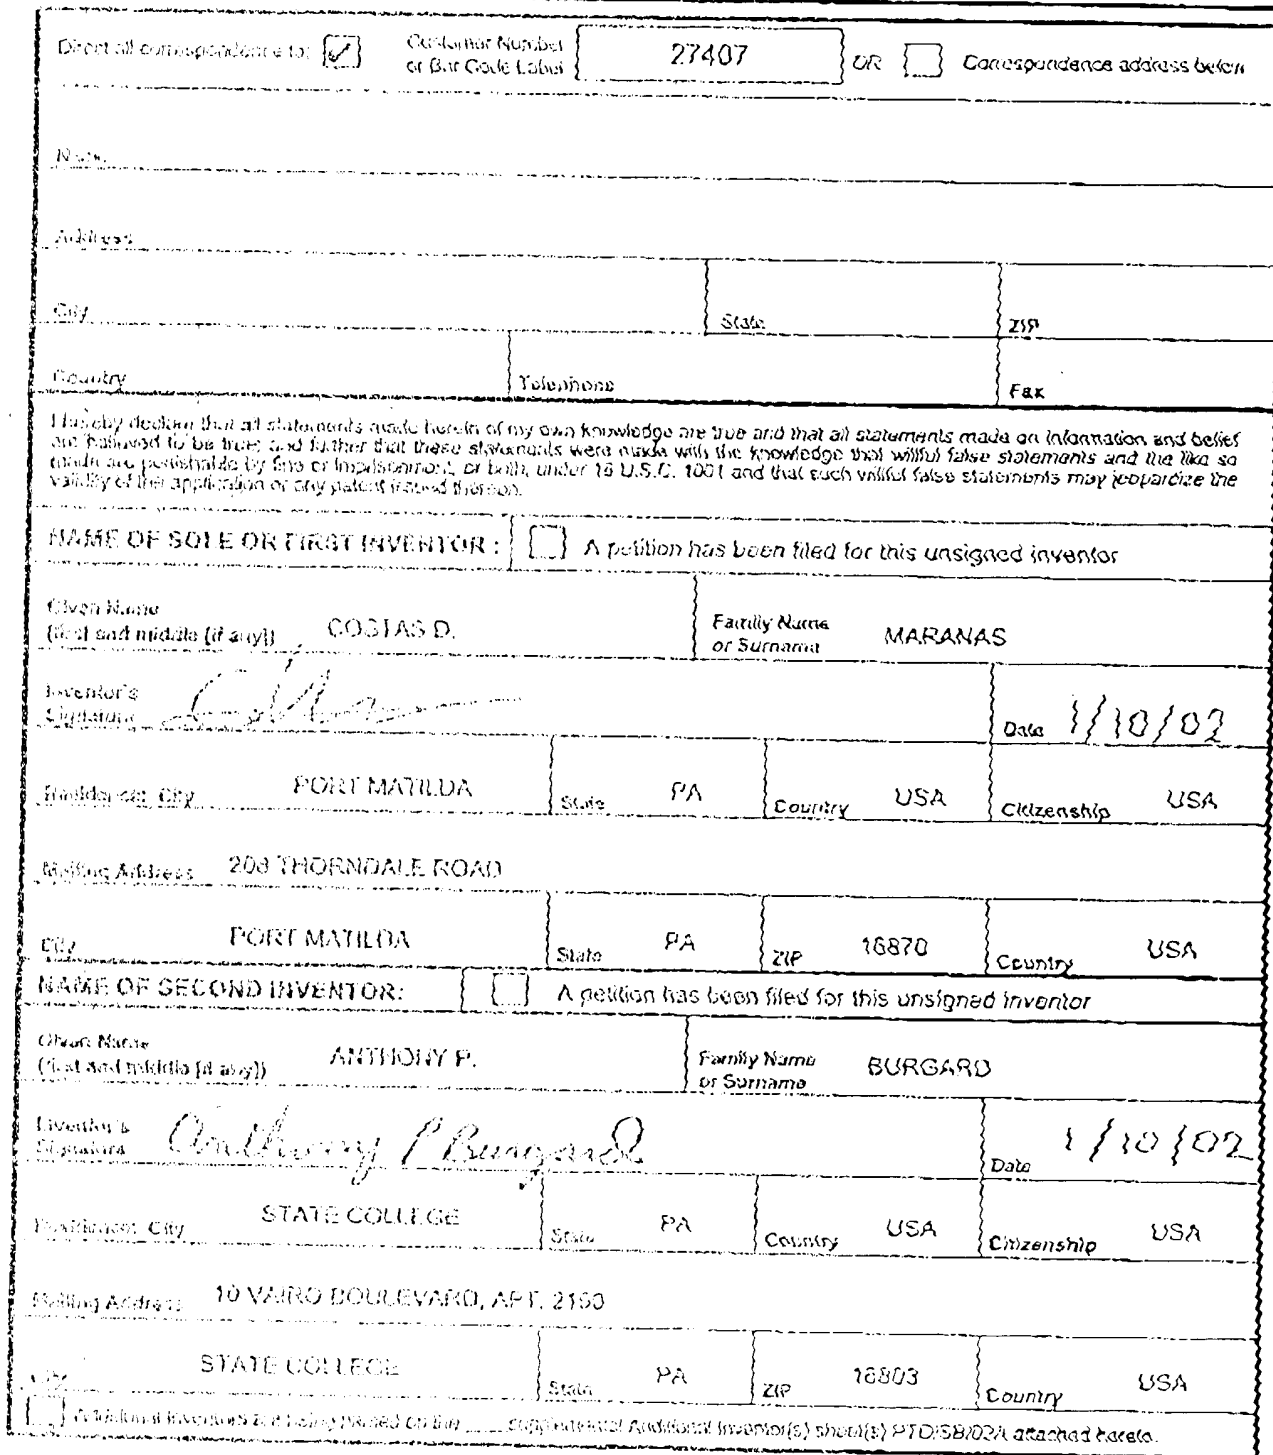 Direct all correspondence to: Customer Number or Bar Code Label 27407 OR Correspondence address below
Name
Address
City State ZIP
Country Telephone Fax
I hereby declare that all statements made herein of my own knowledge are true and that all statements made on information and belief
are believed to be true; and further that these statements were made with the knowledge that willful false statements and the like so
made are punishable by fine or imprisonment, or both, under 18 U.S.C. 1001 and that such willful false statements may jeopardize the
validity of the application or any patent issued thereon.
NAME OF SOLE OR FIRST INVENTOR : A petition has been filed for this unsigned inventor
Given Name
(first and middle [if any]) COSTAS D. Family Name or Surname MARANAS
Inventor's
Signature Date 1/10/02
Residence: City PORT MATILDA State PA Country USA Citizenship USA
Mailing Address 208 THORNDALE ROAD
City PORT MATILDA State PA ZIP 16870 Country USA
NAME OF SECOND INVENTOR: A petition has been filed for this unsigned inventor
Given Name
(first and middle [if any]) ANTHONY P. Family Name or Surname BURGARD
Inventor's
Signature Anthony P Burgard Date 1/10/02
Residence: City STATE COLLEGE State PA Country USA Citizenship USA
Mailing Address 10 VAIRO BOULEVARD, APT. 2150
City STATE COLLEGE State PA ZIP 16803 Country USA
Additional inventors are being named on the ___ supplemental Additional Inventor(s) sheet(s) PTO/SB/02A attached hereto.